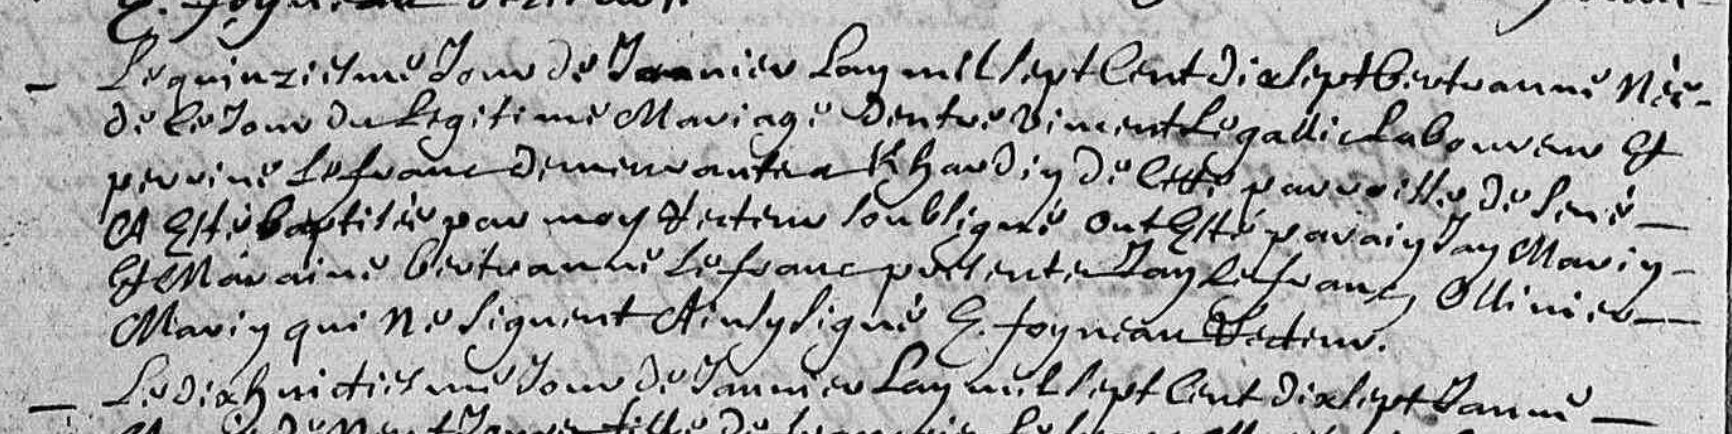 E. Joyneau Recteur.
Le quinziesme Jour de Janvier Lan mil sept Cent dix sept bertranne Née
de Ce Jour du Legitime Mariage dentre Vincent Le gallic Laboureur Et
perrine Le franc demeurantes a Khardin de Cette parroisse de Sené
A Esté baptisée par moy Recteur Soubsigné ont Esté parain Jan Marin
Et Maraine bertranne Le franc presente Jan Le franc, Ollivier
Marin qui Ne Signent Ainsy Signé E. Joyneau Recteur.
Le dixhuictiesme Jour de Janvier Lan mil sept Cent dix sept Janne